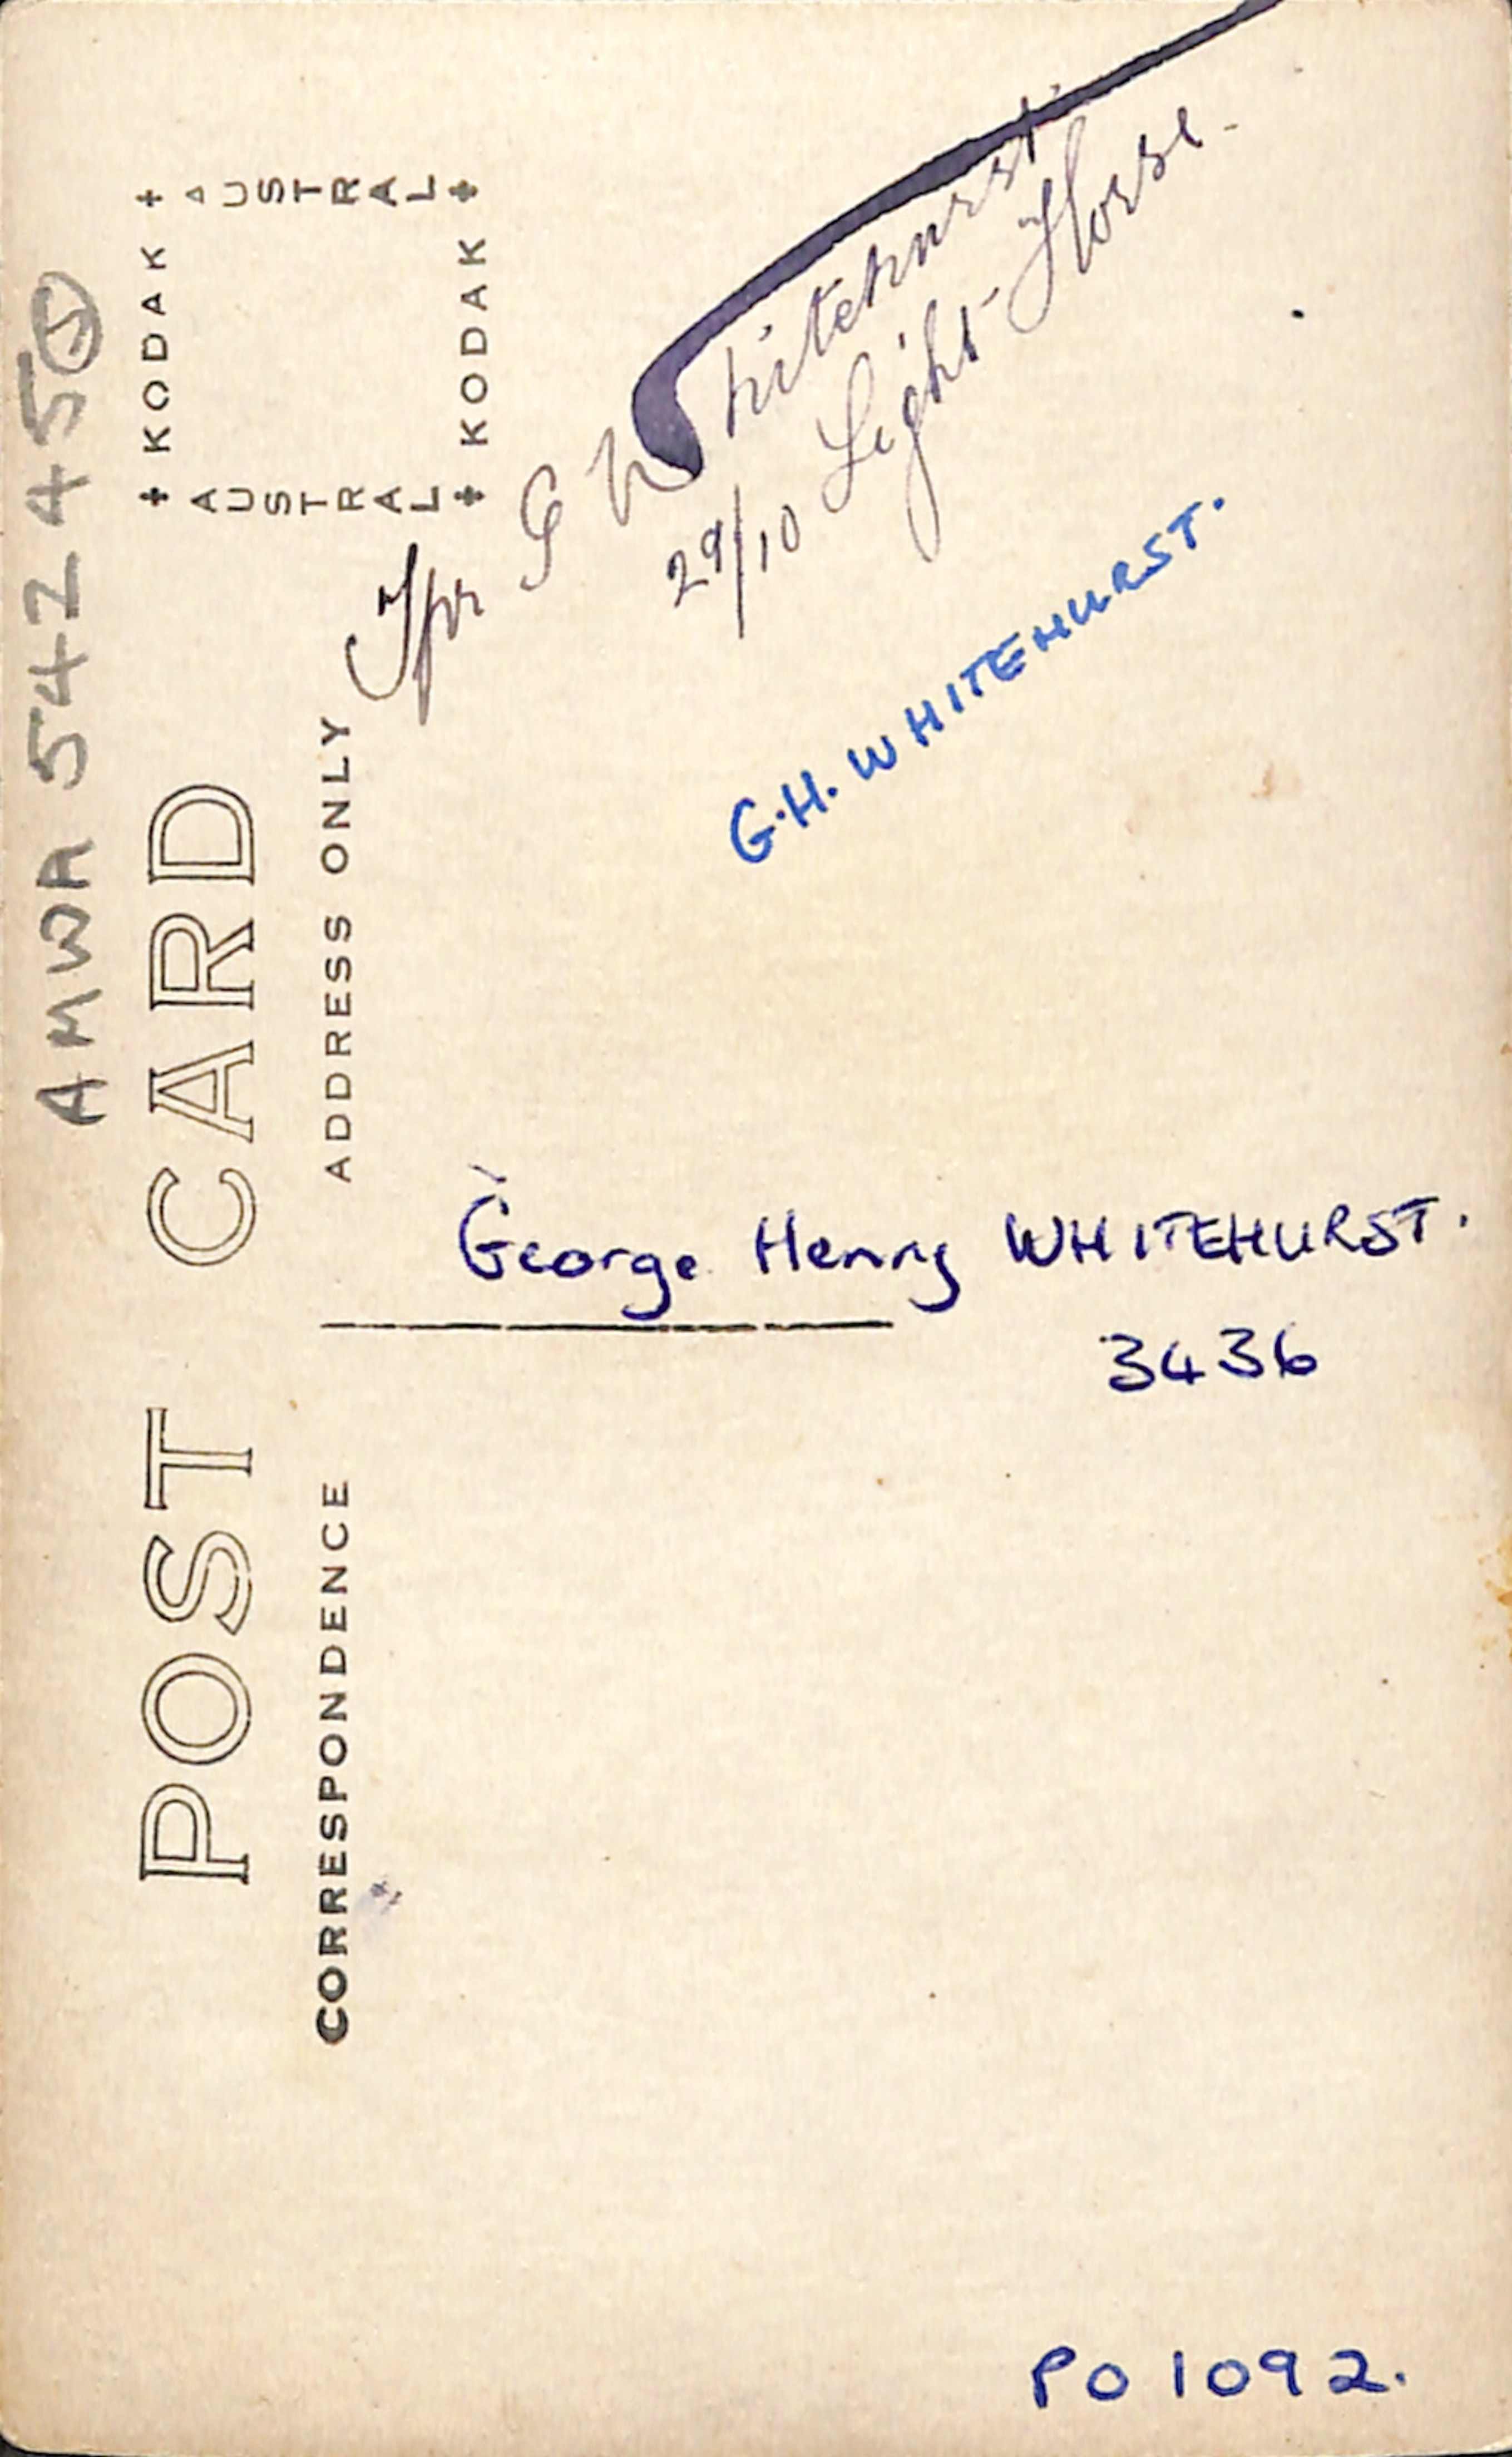 AMWA 542455
POST CARD
+ KODAK +
AUSTRAL
AUSTRAL
+ KODAK +
CORRESPONDENCE
ADDRESS ONLY
Tpr G Whitehurst.
29/10 Light Horse.
G.H. WHITEHURST.
George Henry WHITEHURST.
3436
PO 1092.